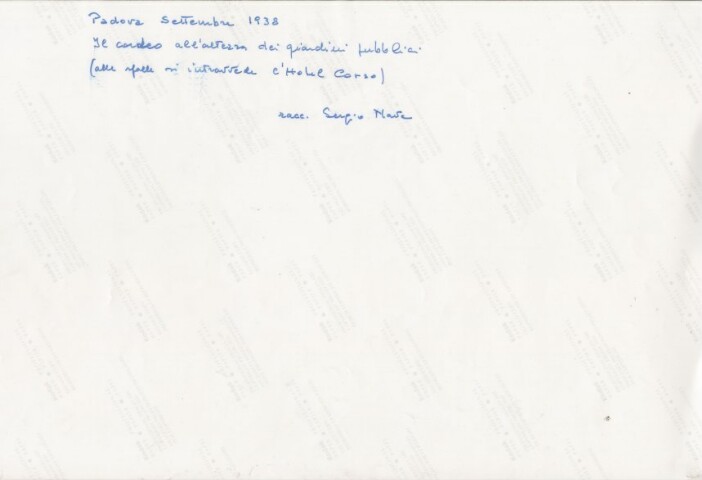 Padova Settembre 1938
Il corteo all'altezza dei giardini pubblici
(alle spalle si intravvede l'Hotel Corso)
racc. Sergio